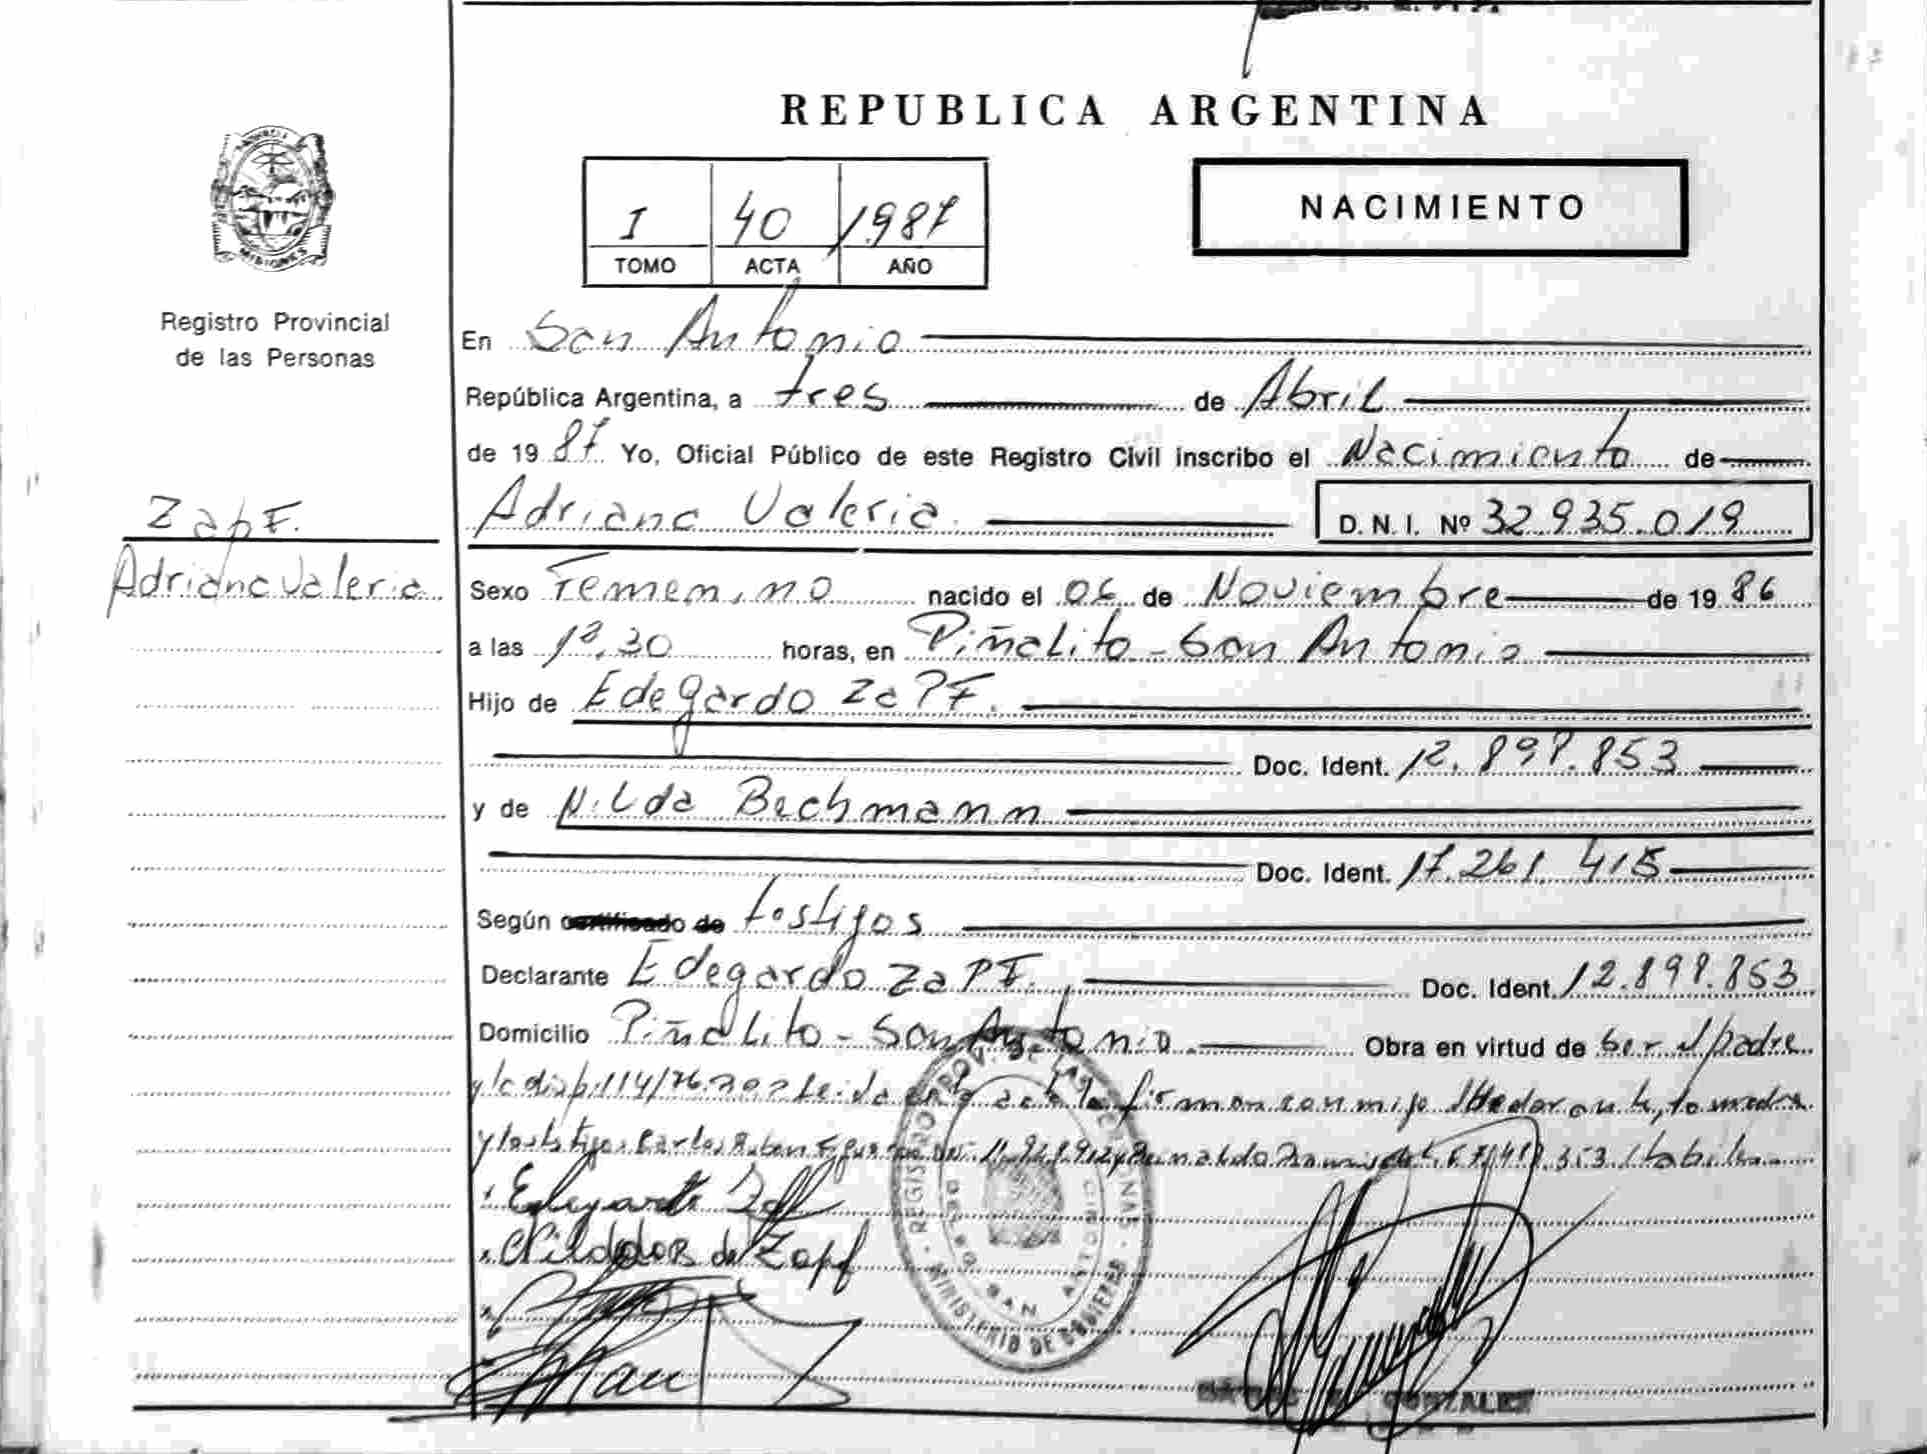 REPUBLICA ARGENTINA
NACIMIENTO
I 40 1987
TOMO ACTA AÑO
MISIONES
Registro Provincial
de las Personas
Zapf.
Adriana Valeria
En San Antonio
República Argentina, a tres de Abril
de 1987 Yo, Oficial Público de este Registro Civil inscribo el Nacimiento de
Adriana Valeria D. N. I. Nº 32.935.019
Sexo Femenino nacido el 06 de Noviembre de 1986
a las horas, en Piñalito - San Antonio
Hijo de Edegardo Zapf.
Doc. Ident. 12.898.853
y de Nilda Bechmann
Doc. Ident. 17.261.415
Según certificado de testigos
Declarante Edegardo Zapf. Doc. Ident. 12.898.853
Domicilio Piñalito - San Antonio. Obra en virtud de ser el padre
y la disp. 114/76. Leida el acta la firman conmigo la madre
y los testigos Carlos Ruben
Edegardo Zapf
de Zapf
REGISTRO PROV. DE LAS PERSONAS
DELEG. SAN ANTONIO
MINISTERIO DE GOBIERNO
GONZALEZ